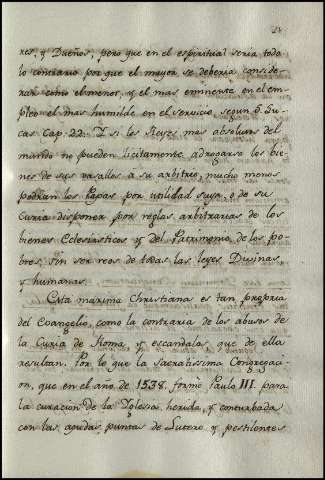 res, y Dueños, pero que en el espiritual seria todo
lo contrario por que el mayor se deberia conside-
rar como el menor, y el mas eminente en el em-
pleo el mas humilde en el servicio, segun S. Lu-
cas Cap. 22. Y si los Reyes mas absolutos del
mundo no pueden licitamente adrogarse los bie-
nes de sus vasallos a su arbitrio, mucho menos
podrian los Papas por utilidad suya, o de su
Curia disponer por reglas arbitrarias de los
bienes Eclesiasticos y del Patrimonio de los po-
bres, sin ser reos de todas las leyes Divinas,
y humanas.
Esta maxima Christiana es tan propria
del Evangelio, como la contraria de los abusos de
la Curia de Roma, y escandalos que de ella
resultan. Por lo que la Sacratissima Congregaci-
on, que en el año de 1538. formó Paulo III. para
la curacion de la Iglesia, herida, y conturbada
con las agudas puntas de Lutero y pestilentes